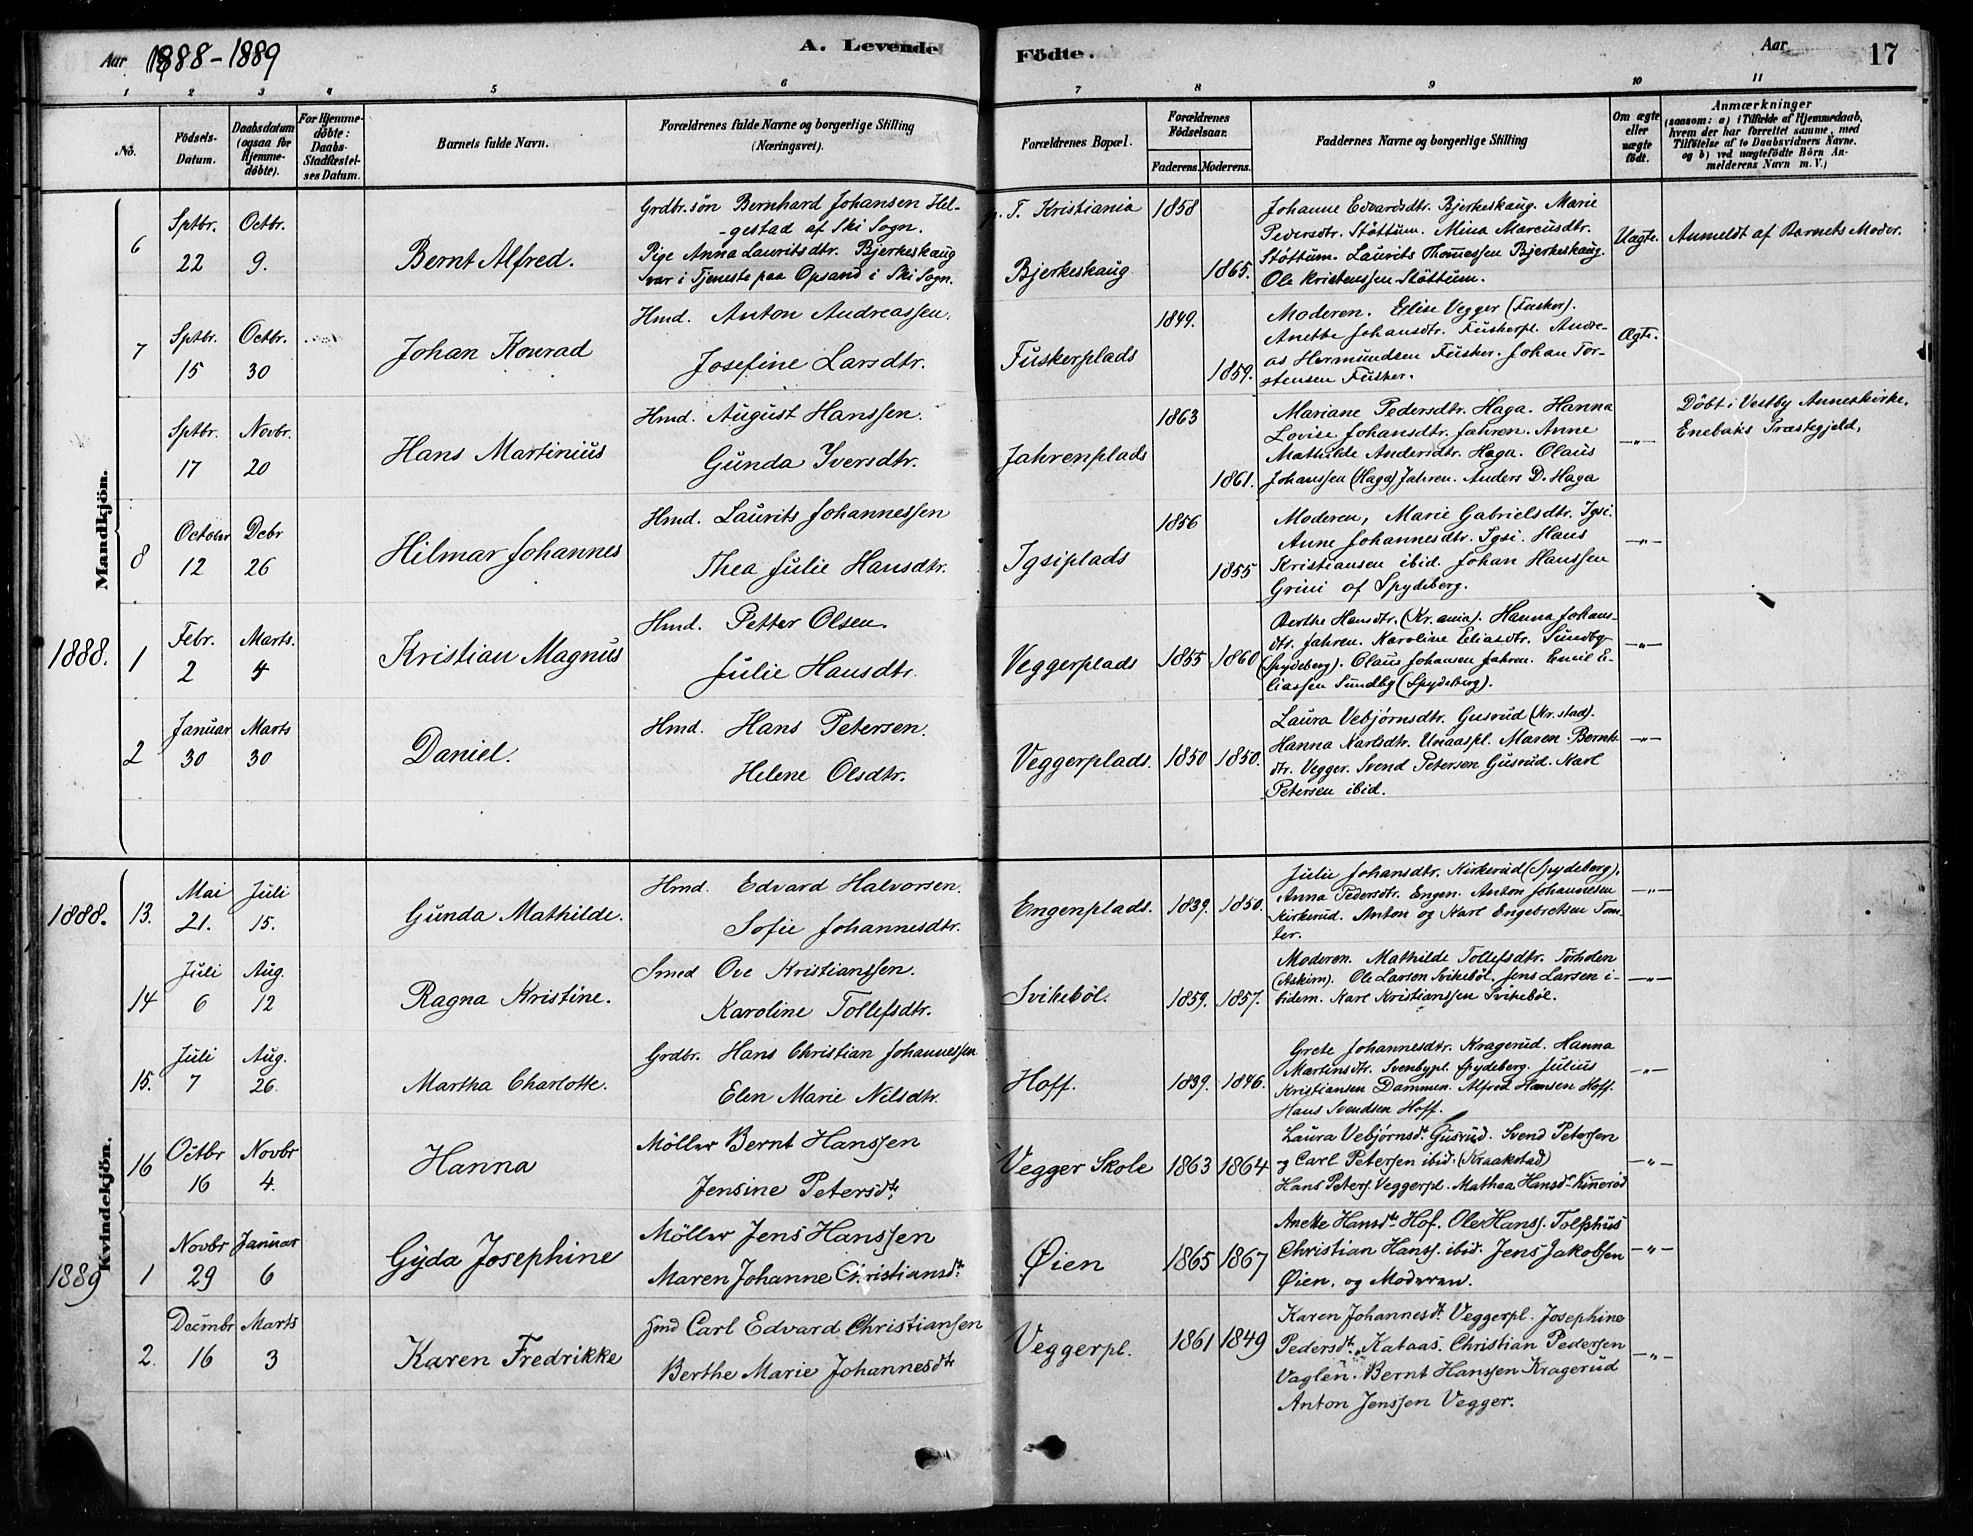 Aar 1888-1889
A. Levende Födte.
Aar
17
1 2 3 4 5 6 7 8 9 10 11
No.
Födsels-Datum.
Daabsdatum (ogsaa for Hjemme-döbte).
For Hjemme-döbte: Daabs-Stadfæstel-ses Datum.
Barnets fulde Navn.
Forældrenes fulde Navne og borgerlige Stilling (Næringsvei).
Forældrenes Bopæl.
Forældrenes Födselsaar.
Faderens. Moderens.
Faddernes Navne og borgerlige Stilling
Om ægte eller uægte födt.
Anmærkninger
(saasom: a) i Tilfælde af Hjemmedaab,
hvem der har forrettet samme, med
Tilföielse af to Daabsvidners Navne.
og b) ved uægtefödte Börn An-
melderens Navn m. V.)
Mandkjön.
6
Sptbr. 22
Octbr. 9.
Bernt Alfred.
Grdbr. sön Bernhard Johansen Hel-
-gestad af Ski Sogn.
Pige Anna Lauritsdtr. Bjerkeskaug
var i Tjeneste paa Opsand i Ski Sogn.
p. T. Kristiania
Bjerkeskaug
1858
1865.
Johanne Edvardsdtr. Bjerkeskaug. Marie
Pedersdtr. Stöttum. Mina Marcusdtr.
Stöttum. Laurits Thomessen Bjerkeskaug.
Ole Kristenssen Stöttum.
Uægte.
Anmeldt af Barnets Moder.
7
Sptbr. 15
Octbr. 30
Johan Konrad
Hmd. Anton Andreassen.
Josefine Larsdtr.
Fuskerplads
1849.
1859.
Moderen. Elise Vegger (Fusker).
Anette Johansdtr. Fuskerpl. Andre-
as Hermundsen Fusker. Johan Tor-
stensen Fusker.
Ægte.
Sptbr. 17
Novbr. 20
Hans Martinius
Hmd. August Hanssen.
Gunda Iversdtr.
Jahrenplads
1863
1861.
Mariane Pedersdtr. Haga. Hanna
Lovise Johansdtr. Jahren. Anne
Mathilde Andersdtr. Haga. Olaus
Johanssen (Haga) Jahren. Anders D. Haga
-"-
Döbt i Vestby Annexkirke,
Enebaks Præstegjeld,
8
October 12
Debr 26
Hilmar Johannes
Hmd. Laurits Johannessen
Thea Julie Hansdtr.
Igsiplads
1856
1855
Moderen, Marie Gabrielsdtr. Igsi.
Anne Johannesdtr. Igsi. Hans
Kristiansen ibid. Johan Hanssen
Grini af Spydeberg.
-"-
1888.
1
Febr. 2
Marts. 4
Kristian Magnus
Hmd. Petter Olsen.
Julie Hansdtr.
Veggerplads
1855 1860
Berthe Hansdtr. (Kr.ania). Hanna Johans-
dtr. Jahren. Karoline Eliasdtr. Sundby
(Spydeberg). Olaus Johansen Jahren. Emil E-
liassen Sundby (Spydeberg).
-"-
2
Januar 30
Marts 30
Daniel.
Hmd. Hans Petersen.
Helene Olsdtr.
Veggerplads.
1850 1850.
Laura Vebjørnsdtr. Gusrud (Kr.stad).
Hanna Karlsdtr. Unaaspl. Maren Bernts-
dtr. Vegger. Svend Petersen Gusrud. Karl
Petersen ibid.
-"-
Kvindekjön.
1888.
13.
Mai 21.
Juli 15.
Gunda Mathilde.
Hmd. Edvard Halvorsen.
Sofie Johannesdtr.
Engenplads.
1839. 1850.
Julie Johansdtr. Kirkerud (Spydeberg).
Anna Pedersdtr. Engen. Anton Johannesen
Kirkerud. Anton og Karl Engebretsen Tom-
ter.
-"-
14
Juli 6
Aug. 12
Ragna Kristine.
Smed Ove Kristianssen.
Karoline Tollefsdtr.
Svikeböl.
1859. 1857.
Moderen. Mathilde Tollefsdtr. Torholen
(Askim). Ole Larsen Svikeböl. Jens Larsen i-
bidem. Karl Kristianssen Svikeböl.
-"-
15.
Juli 7
Aug. 26.
Martha Charlotte.
Grdbr. Hans Christian Johannessen
Elen Marie Nilsdtr.
Hoff.
1839. 1846.
Grete Johannesdtr. Kragerud. Hanna
Martinsdtr. Svenbypl. Spydeberg. Julius
Kristiansen Dammen. Alfred Hansen Hoff.
Hans Svendsen Hoff.
-"-
16
Octbr 16
Novbr 4.
Hanna
Möller Bernt Hanssen
Jensine Petersdtr.
Vegger Skole
1863 1864
Laura Vebjørnsdtr. Gusrud. Svend Petersen
og Carl Petersen ibid. (Kraakstad)
Hans Peters. Veggerpl. Mathea Hansdtr. Kinnerød
-"-
1889
1
Novbr 29
Januar 6
Gyda Josephine
Möller Jens Hanssen
Maren Johanne Christiansdtr.
Øien
1865 1867
Anette Hansdtr. Hof. Ole Hanss. Tolfshus
Christian Hanss. ibid. Jens Jakobsen
Øien, og Moderen.
-"-
2.
Decmbr 16
Marts 3
Karen Fredrikke
Hmd Carl Edvard Christiansen
Berthe Marie Johannesdtr
Veggerpl.
1861 1849
Karen Johannesdtr Veggerpl. Josephine
Pedersdtr. Kataas. Christian Pedersen
Vaglen. Bernt Hanssen Kragerud
Anton Jenssen Vegger.
-"-